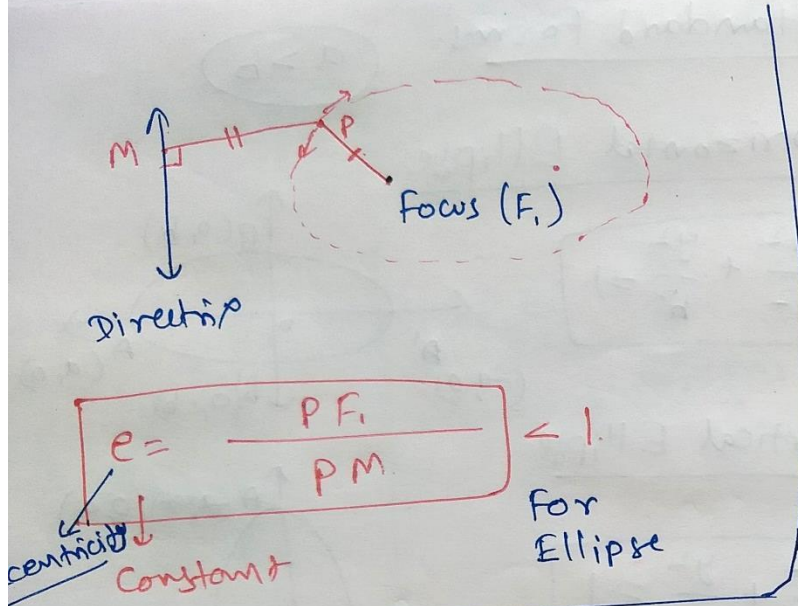 M
P
Focus (F₁)
Directrix
e = PF₁ / PM < 1.
For
Ellipse
centricity
Constant